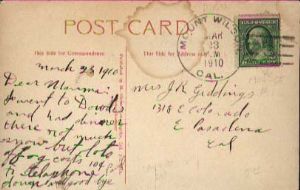 POST CARD
This Side for Correspondence
This Side is for Address
MOUNT WILSON
MAR
23
M
1910
CAL.
March 23 1910
Dear Mamma:
I went to Dowds
and had dinner
there not much
snow but lots
of fog costs 10¢
to telephone
down and good bye
Mrs J R Giddings
1318 E Colorado
E Pasadena
Cal